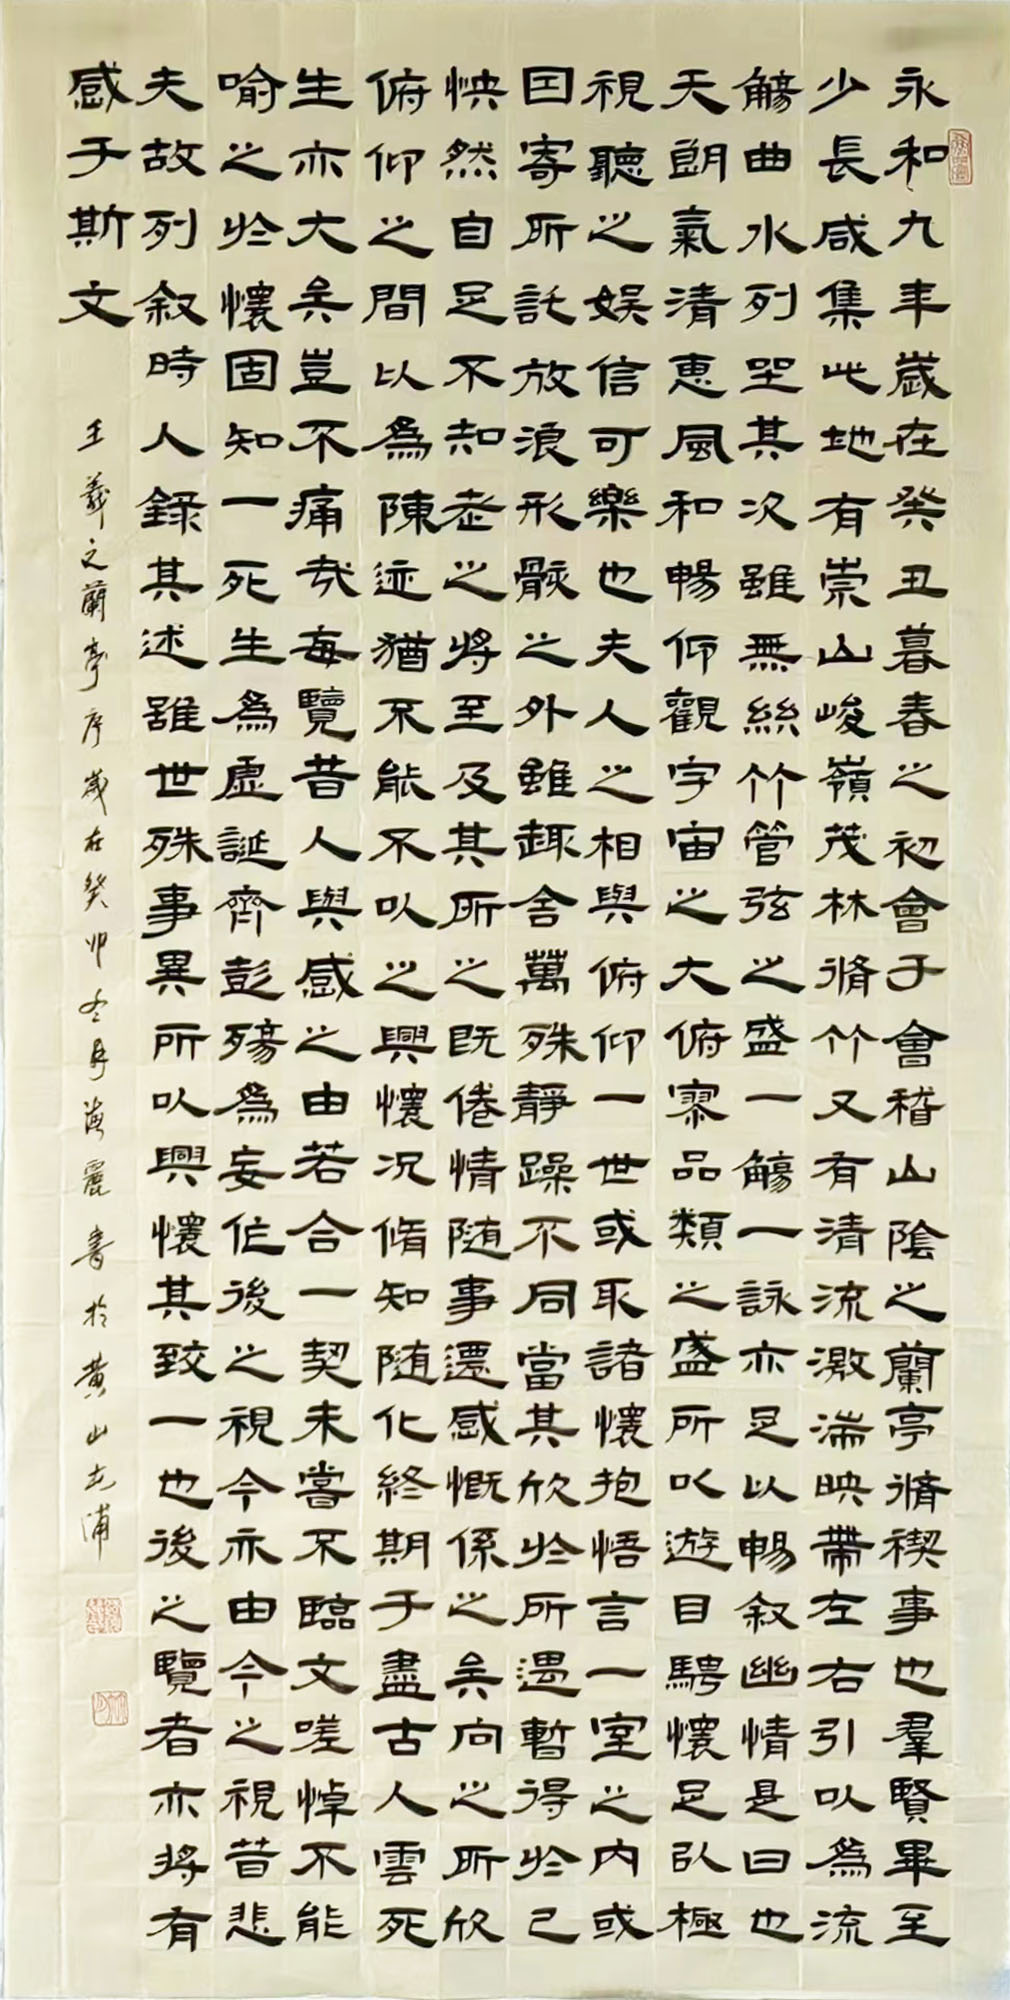 永和九年歲在癸丑暮春之初會于會稽山陰之蘭亭脩禊事也羣賢畢至
少長咸集此地有崇山峻嶺茂林脩竹又有清流激湍映帶左右引以為流
觴曲水列坐其次雖無絲竹管弦之盛一觴一詠亦足以暢叙幽情是日也
天朗氣清惠風和暢仰觀宇宙之大俯察品類之盛所以遊目騁懷足以極
視聽之娛信可樂也夫人之相與俯仰一世或取諸懷抱悟言一室之内或
因寄所託放浪形骸之外雖趣舍萬殊靜躁不同當其欣於所遇暫得於己
怏然自足不知老之將至及其所之既倦情随事遷感慨係之矣向之所欣
俯仰之間以為陳迹猶不能不以之興懷况脩知随化終期于盡古人雲死
生亦大矣豈不痛哉每覽昔人興感之由若合一契未嘗不臨文嗟悼不能
喻之於懷固知一死生為虛誕齊彭殤為妄作後之視今亦由今之視昔悲
夫故列叙時人錄其述雖世殊事異所以興懷其致一也後之覽者亦將有
感于斯文
王羲之蘭亭序歲在癸卯冬月海麗書於黄山